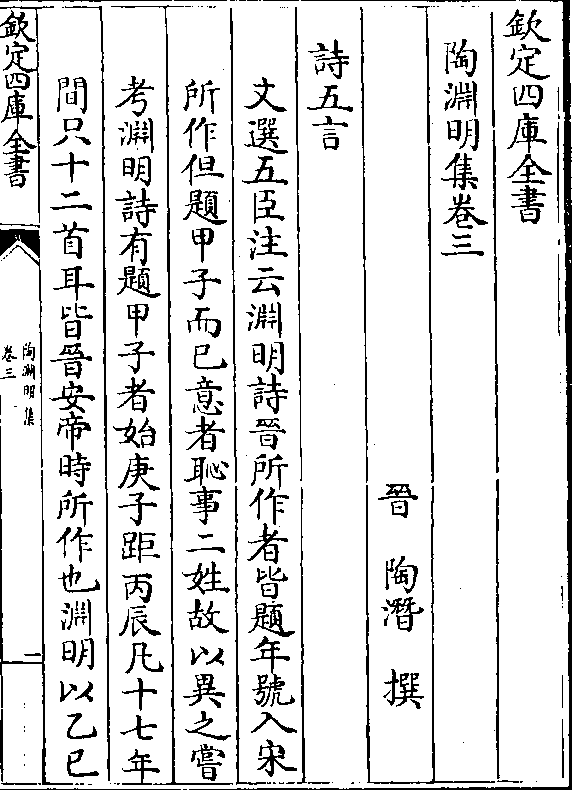 欽定四庫全書
陶淵明集卷三
晉　陶潛　撰
詩五言
文選五臣注云淵明詩晉所作者皆題年號入宋
所作但題甲子而已意者恥事二姓故以異之嘗
考淵明詩有題甲子者始庚子距丙辰凡十七年
間只十二首耳皆晉安帝時所作也淵明以乙巳
欽定四庫全書
陶淵明集
卷三
一